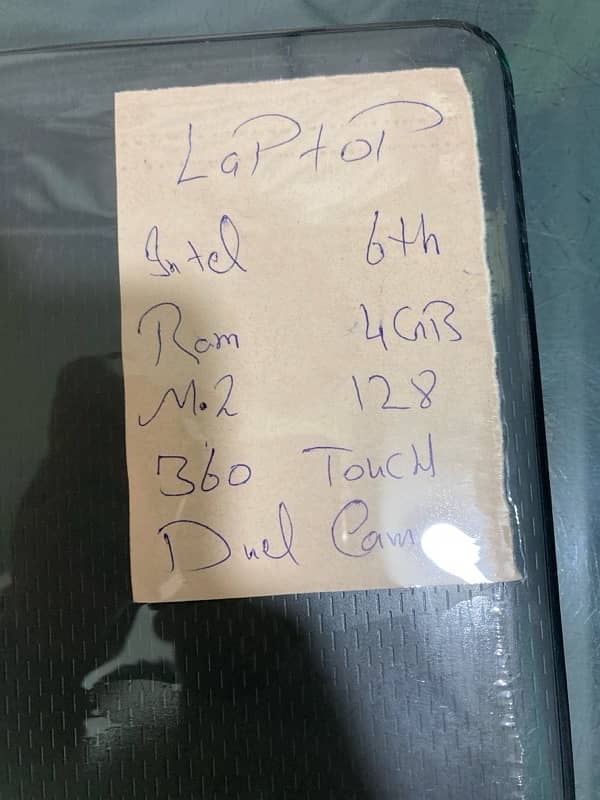 LaPtoP
Intel 6th
Ram 4GB
M.2 128
360 Touch
Duel Cam